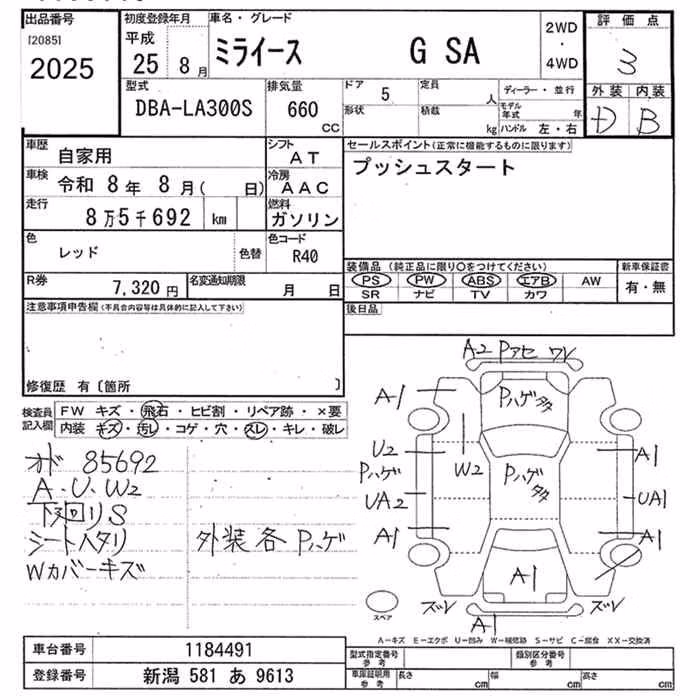 出品番号
[2085]
2025
初度登録年月
平成
25 8 月
車名・グレード
ミライース G SA
2WD
・
4WD
評価点
3
外装 内装
D B
型式
DBA-LA300S
排気量
660
CC
ドア
5
定員
人
形状
積載
kg
ディーラー・並行
モデル
年式
年
ハンドル 左・右
車歴
自家用
シフト
AT
車検
令和 8年 8月( 日)
冷房
AAC
走行
8万5千692 km
燃料
ガソリン
色
レッド
色替
色コード
R40
R券
7,320 円
名変通知期限
月 日
セールスポイント(正常に機能するものに限ります)
プッシュスタート
装備品 (純正品に限り○をつけてください)
PS PW ABS エアB AW
SR ナビ TV カワ
新車保証書
有・無
後日品
注意事項申告欄(不具合内容等は具体的に記入して下さい)
修復歴 有〔箇所 〕
検査員
記入欄
FW キズ・飛石・ヒビ割・リペア跡・×要
内装 キズ・汚レ・コゲ・穴・スレ・キレ・破レ
オド 85692
A・U・W2
下廻りS
シートヘタリ
Wカバーキズ
外装各Pハゲ
A2 Pアセ ワレ
A1
Pハゲ タタ
U2
Pハゲ
W2
Pハゲ
タタ
A1
UA2
UA1
A1
A1
A1
ズレ
ズレ
A1
スペア
A-キズ E-エクボ U-凹み W-補修跡 S-サビ C-腐食 XX-交換済
車台番号
1184491
登録番号
新潟 581 あ 9613
型式指定番号
参考
類別区分番号
参考
車庫証明用
参考
長さ
cm
幅
cm
高さ
cm